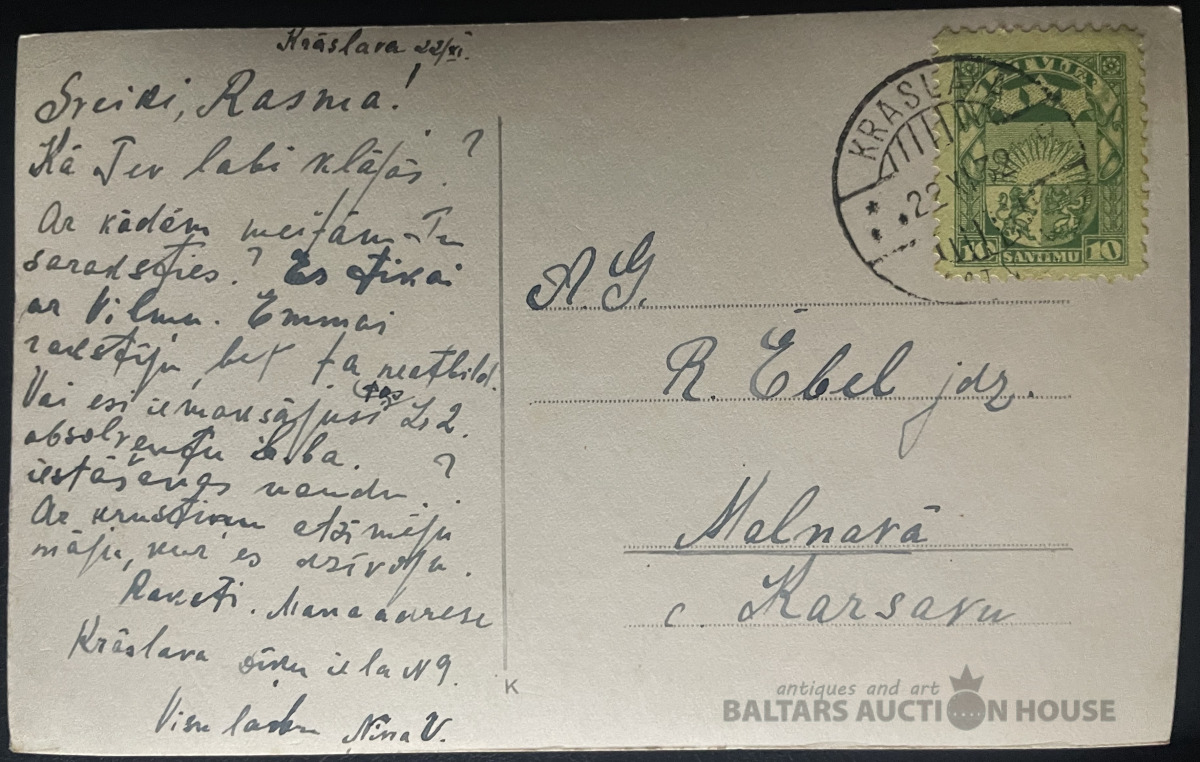 Krāslava 22/XI.
Sveiki, Rasma!
Kā Tev labi klājās?
Ar kādām meitām Tu
saraksties? Es tikai
ar Vilmu. Emmai
rakstīju, bet ta neatbild.
Vai esi iemaksājusi tos Ls 2.
absolventu b-ba.
iestāšanas naudu?
Ar krustiņu atzīmēju
māju, kur es dzīvoju.
Raksti. Mana adrese
Krāslava iela N 9.
Visu labu Nina V.
A. G.
R. Ēbel jdz.
Malnavā
c. Karsavu
K
KRASLAVA
22 XI
LATVIJA
10 SANTIMU 10
antiques and art
BALTARS AUCTION HOUSE